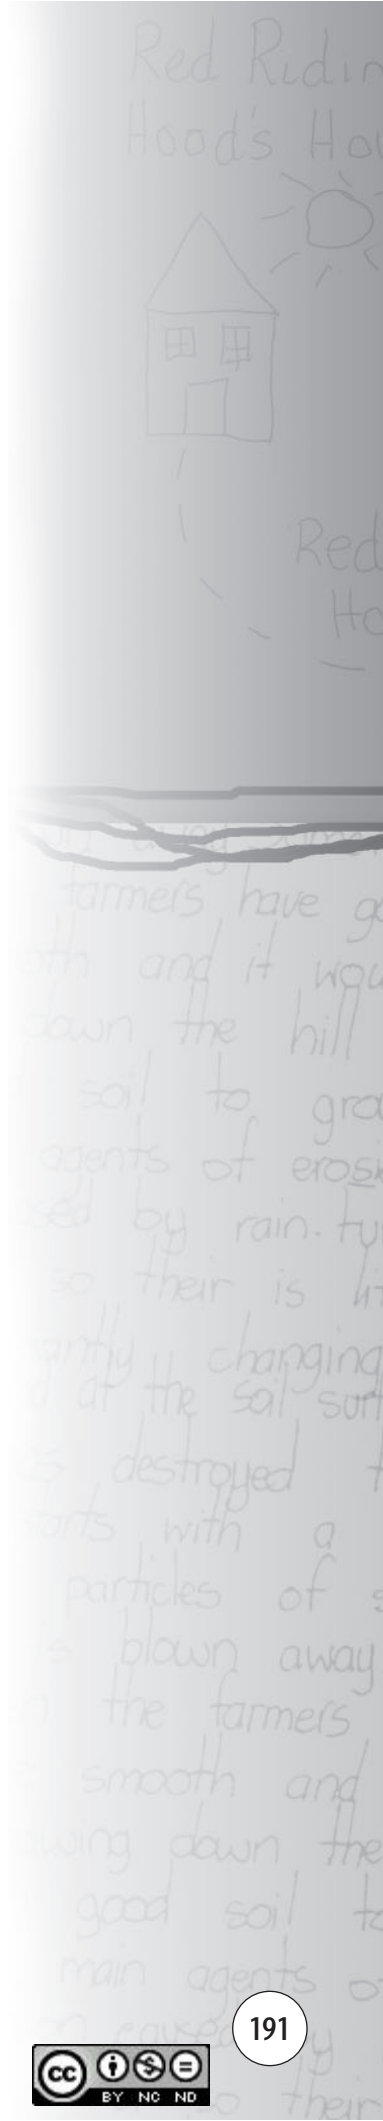 Red Ridin
Hood's Hou
Red
Ho
away some
farmers have go
and it wou
down the hill
soil to gro
agents of erosi
by rain. fu
so their is lit
changing
at the soil surf
destroyed t
with a
particles of s
is blown away
the farmers
smooth and
down the
good soil to
main agents o
191
caused by
cc
BY NC ND
their